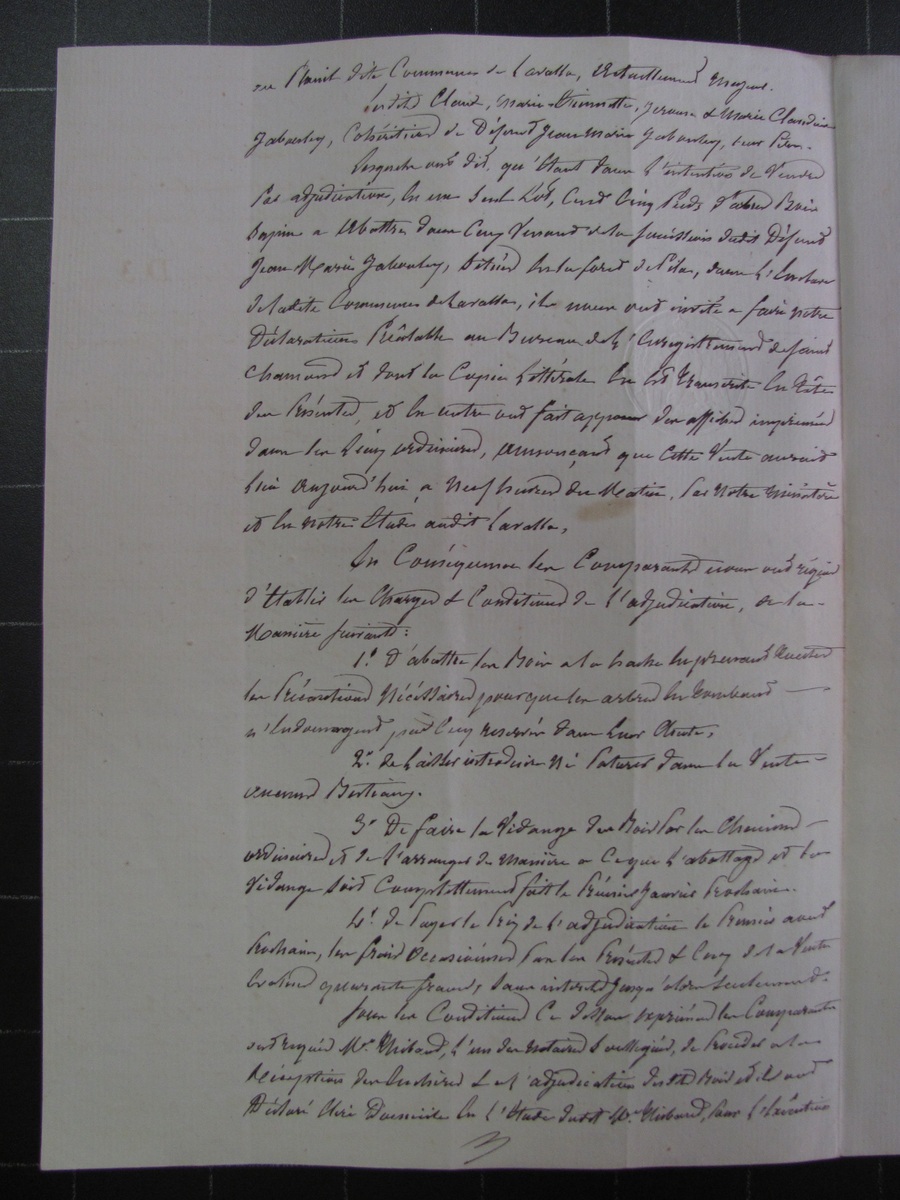 au Planil dite Commune de Lavalla, actuellement majeur.
Lesdits Claude, Marie Etiennette, Jeanne & Marie Claudine
Jabouley, Cohéritiers de Défunt Jean Marie Jabouley, leur Père.
Lesquels ont dit, qu'étant dans l'intention de Vendre
Par adjudication, en un Seul Lot, Cent Cinq Pieds d'arbres Bois
Sapin a Abattre dans Ceux Venant de la Succession dudit Défunt
Jean Marie Jabouley, Situés en la forêt de Pila, dans l'Enclave
de ladite Commune de Lavalla, ils nous ont invité a faire notre
Déclaration Préalable au Bureau de l'Enregistrement de Saint
Chamond et dont la Copie Littérale En est transcrite En tête
des Présentes, et En outre ont fait apposer des affiches imprimées
dans les Lieux ordinaires, annonçant que Cette Vente aurait
Lieu aujourd'hui a Neuf heures du Matin, Par Notre Ministère
et En Notre Etude audit Lavalla,
En Conséquence les Comparants nous ont requis
d'Etablir les Charges & Conditions de l'adjudication, de la
Manière suivante:
1.° D'abattre les Bois a la hache En prenant toutes
les Précautions Nécéssaires pour que les arbres En tombant
n'Endomagent pas Ceux reservés dans leur Chute,
2.° de Laisser introduire Ni Paturer dans la Vente
aucuns Bestiaux.
3° De faire la Vidange des Bois Par les Chemins
ordinaires et de s'arranger de Manière a Ce que l'abattage et la
Vidange Soit Complettement fait le Premier Janvier Prochain.
4.° de Payer le Prix de l'adjudication le Premier août
Prochain, les frais Occasionnés Par les Présentes & Ceux de la Vente
Evalués quarante francs, Sans intérêts Jusqu'alors Seulement.
Sous les Conditions Ci dessus exprimées les Comparants
ont requis M.e Thibaud, l'un des Notaires Soussignés, de Procéder a la
Réception des Enchères & a l'adjudication desdits Bois et ils ont
Déclaré Elire Domicile En l'Etude dudit M.e Thibaud, Pour l'Exécution